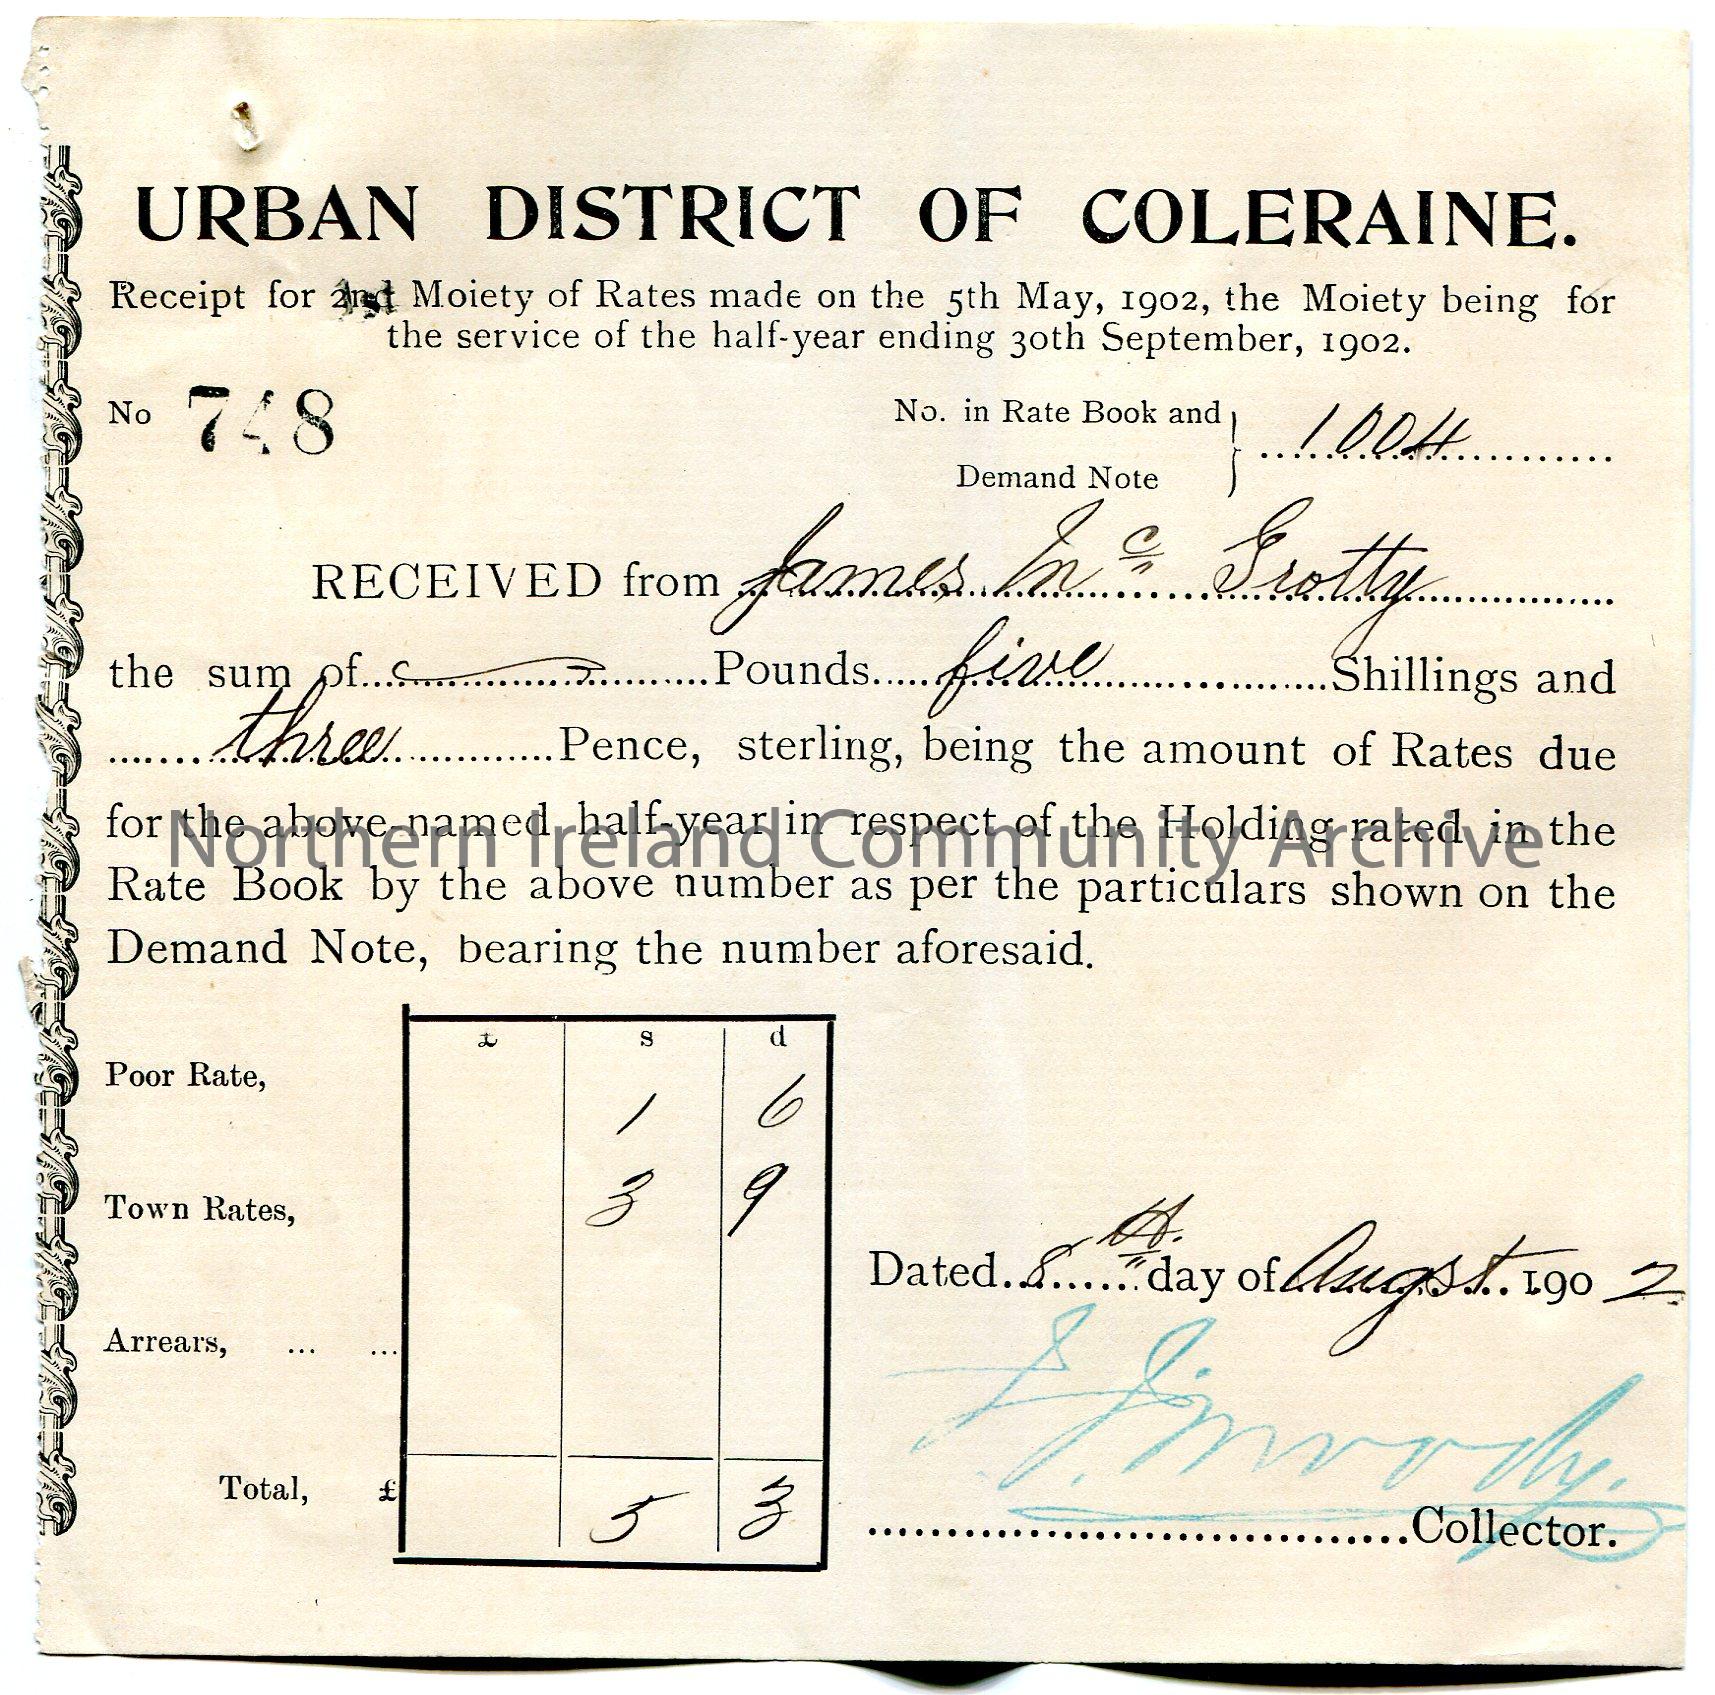 URBAN DISTRICT OF COLERAINE.
Receipt for 1st Moiety of Rates made on the 5th May, 1902, the Moiety being for
the service of the half-year ending 30th September, 1902.
No 748 No. in Rate Book and } 1004
Demand Note
RECEIVED from James Mc Grotty
the sum of Pounds five Shillings and
three Pence, sterling, being the amount of Rates due
for the above-named half-year in respect of the Holding rated in the
Northern Ireland Community Archive
Rate Book by the above number as per the particulars shown on the
Demand Note, bearing the number aforesaid.
£ s d
Poor Rate, 1 6
Town Rates, 3 9
Dated 8th day of Augst. 1902
Arrears, ... ...
Total, £ 5 3
Moody.
Collector.